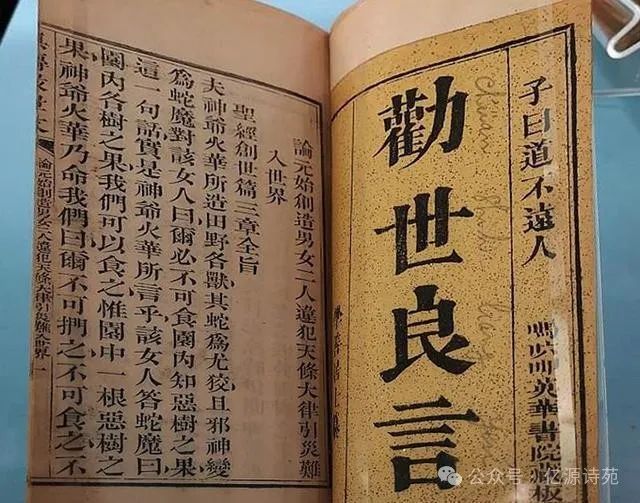 子曰道不遠人
勸世良言
英華書院藏板
論元始創造男女二人違犯天條大律引災難
入世界
聖經創世篇三章全旨
夫神爺火華所造田野各獸其蛇爲尤狡且邪神變
爲蛇魔對該女人曰爾必不可食園內知惡樹之果
這一句話實是神爺火華所言乎該女人答蛇魔曰
園內各樹之果我們可以食之惟園中一根惡樹之
果神爺火華乃命我們曰爾不可捫之不可食之不
論元始創造男女二人違犯天條大律引災難入世界 一
公众号 · 亿源诗苑